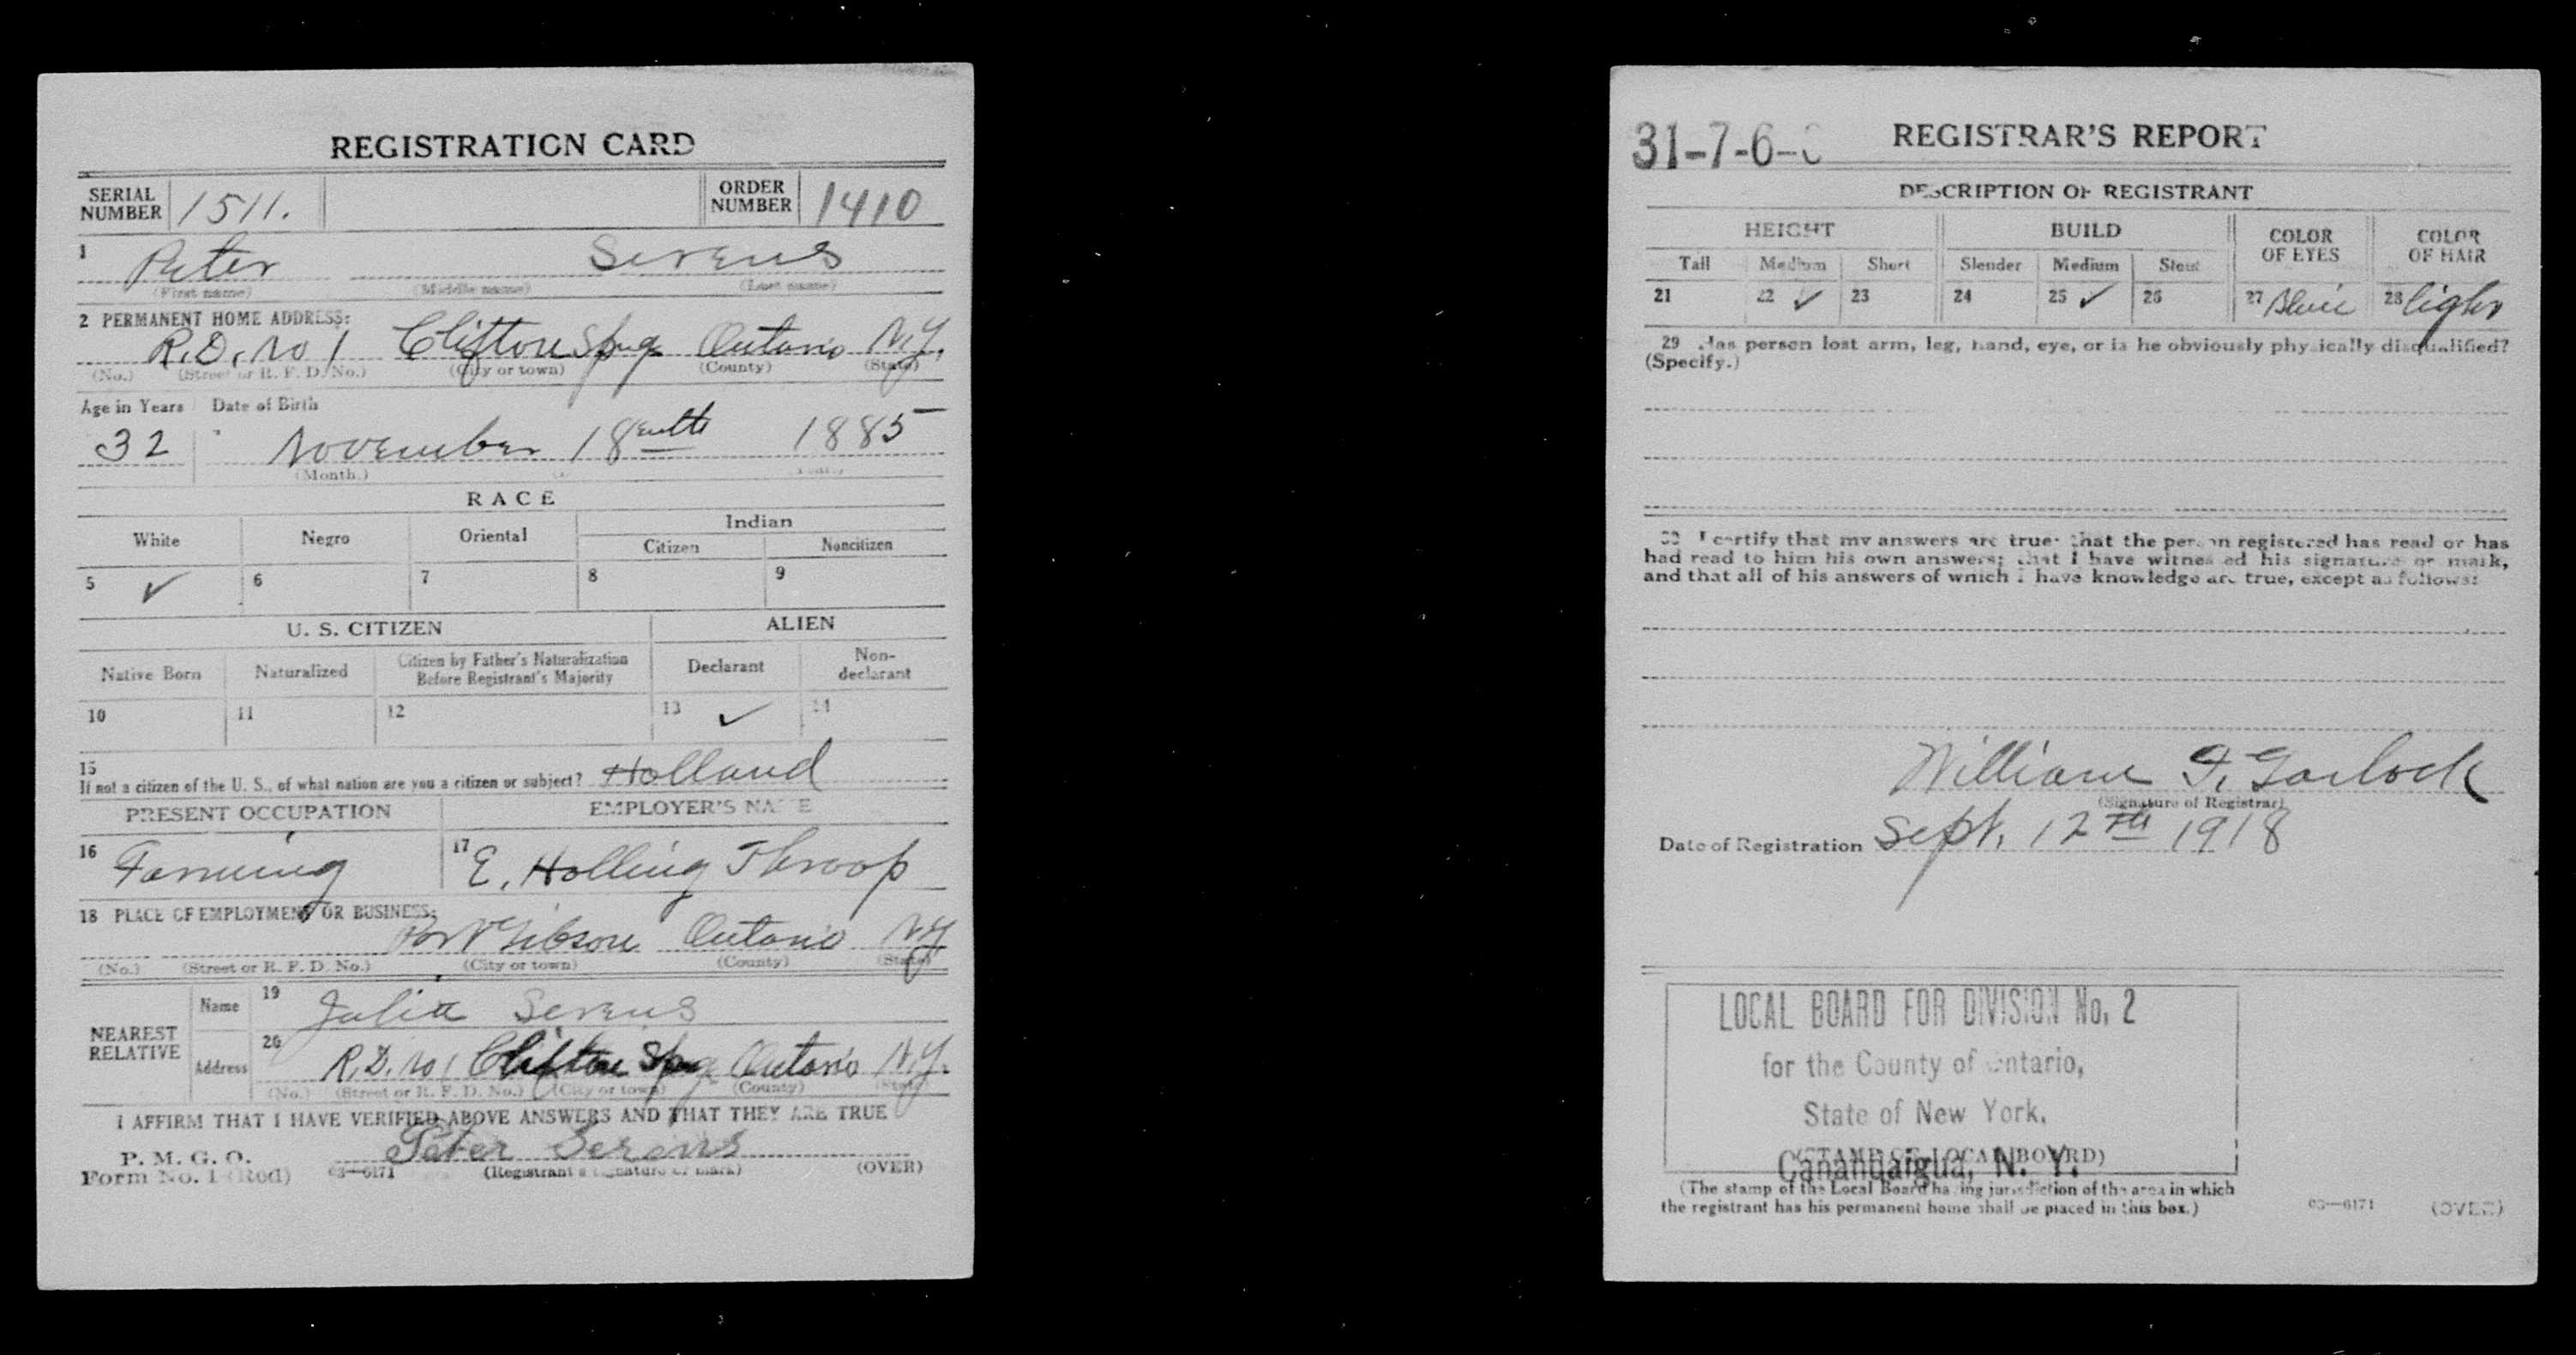 REGISTRATION CARD
SERIAL NUMBER 1511. ORDER NUMBER 1410
1 Peter Serens
(First name) (Middle name) (Last name)
2 PERMANENT HOME ADDRESS:
R.D. No 1 Clifton Spgs Ontario N.Y.
(No.) (Street or R. F. D. No.) (City or town) (County) (State)
Age in Years Date of Birth
32 November 18 1885
(Month.)
RACE
White Negro Oriental Indian
Citizen Noncitizen
5 ✓ 6 7 8 9
U. S. CITIZEN ALIEN
Native Born Naturalized Citizen by Father's Naturalization Before Registrant's Majority Declarant Non-declarant
10 11 12 13 ✓ 14
15
If not a citizen of the U. S., of what nation are you a citizen or subject? Holland
PRESENT OCCUPATION EMPLOYER'S NAME
16 Farming 17 E. Holling Throop
18 PLACE OF EMPLOYMENT OR BUSINESS:
Port Gibson Ontario NY
(No.) (Street or R. F. D. No.) (City or town) (County) (State)
NEAREST RELATIVE
Name 19 Julia Serens
Address 20 R.D. No 1 Clifton Spg Ontario N.Y.
(No.) (Street or R. F. D. No.) (City or town) (County) (State)
I AFFIRM THAT I HAVE VERIFIED ABOVE ANSWERS AND THAT THEY ARE TRUE
P. M. G. O.
Form No. 1 (Red) 03—6171 Peter Serens (Registrant's signature or mark) (OVER)
31-7-6- REGISTRAR'S REPORT
DESCRIPTION OF REGISTRANT
HEIGHT BUILD COLOR OF EYES COLOR OF HAIR
Tall Medium Short Slender Medium Stout
21 22 ✓ 23 24 25 ✓ 26 27 Blue 28 light
29 Has person lost arm, leg, hand, eye, or is he obviously physically disqualified?
(Specify.)
30 I certify that my answers are true; that the person registered has read or has
had read to him his own answers; that I have witnessed his signature or mark,
and that all of his answers of which I have knowledge are true, except as follows:
William F. Garlock
(Signature of Registrar)
Date of Registration Sept. 12th 1918
LOCAL BOARD FOR DIVISION No. 2
for the County of Ontario,
State of New York.
(STAMP OF LOCAL BOARD)
Canandaigua, N. Y.
(The stamp of the Local Board having jurisdiction of the area in which
the registrant has his permanent home shall be placed in this box.)
03—6171 (OVER)